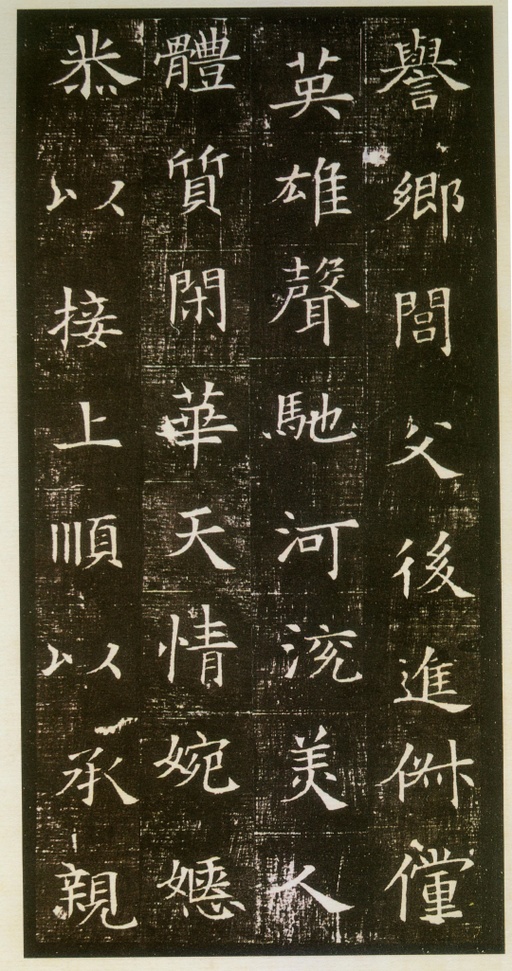 譽鄉閭父後進俶儻
英雄聲馳河沇美人
體質閑華天情婉嫕
恭以接上順以承親